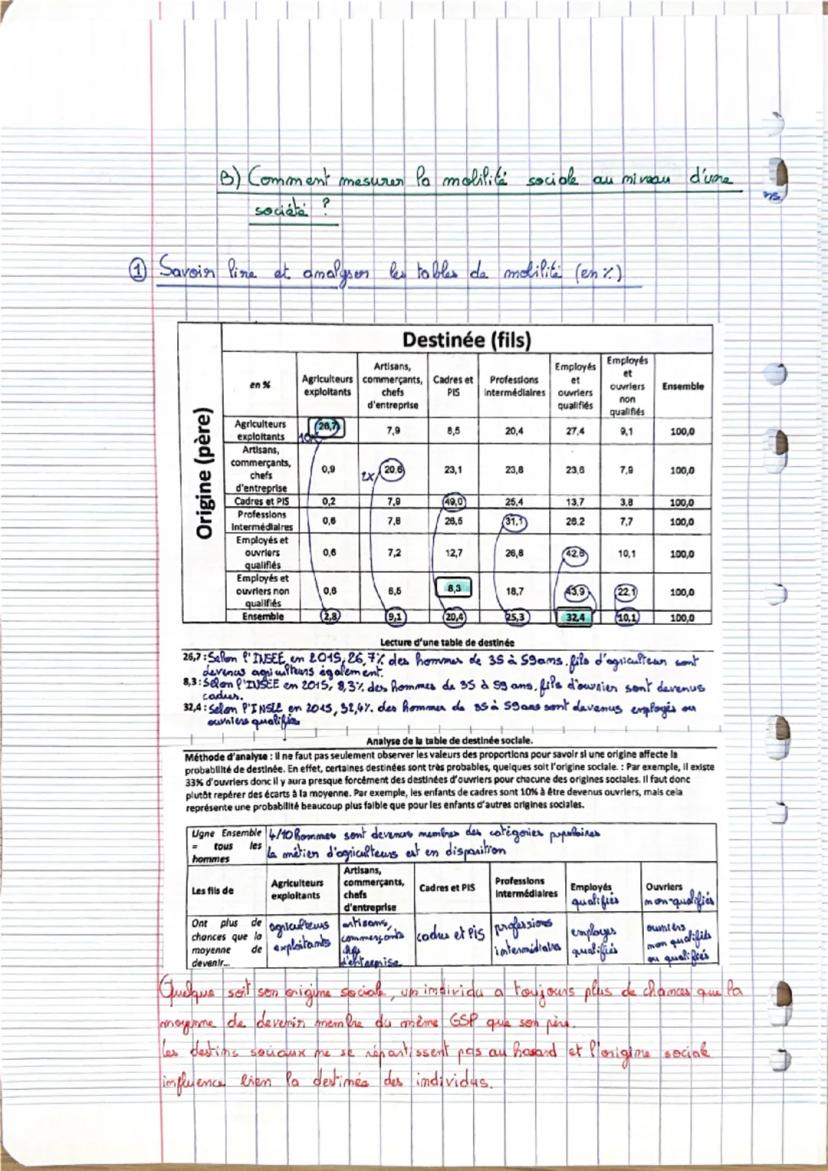 B) Comment mesurer la mobilité sociale au niveau d'une
société ?
① Savoir lire et analyser les tables de mobilité (en %)
Destinée (fils)
Origine (père)
en % Agriculteurs exploitants Artisans, commerçants, chefs d'entreprise Cadres et PIS Professions intermédiaires Employés et ouvriers qualifiés Employés et ouvriers non qualifiés Ensemble
Agriculteurs exploitants 26,7 7,9 8,5 20,4 27,4 9,1 100,0
10x
Artisans, commerçants, chefs d'entreprise 0,9 2x 20,6 23,1 23,8 23,6 7,9 100,0
Cadres et PIS 0,2 7,9 49,0 25,4 13,7 3,8 100,0
Professions intermédiaires 0,6 7,8 26,5 31,1 26,2 7,7 100,0
Employés et ouvriers qualifiés 0,6 7,2 12,7 26,8 42,6 10,1 100,0
Employés et ouvriers non qualifiés 0,6 6,5 8,3 18,7 43,9 22,1 100,0
Ensemble 2,8 9,1 20,4 25,3 32,4 10,1 100,0
Lecture d'une table de destinée
26,7 : Selon l'INSEE en 2015, 26,7% des hommes de 35 à 59 ans, fils d'agriculteur sont
devenus agriculteurs également.
8,3 : Selon l'INSEE en 2015, 8,3% des hommes de 35 à 59 ans, fils d'ouvrier sont devenus
cadres.
32,4 : Selon l'INSEE en 2015, 32,4% des hommes de 35 à 59 ans sont devenus employés ou
ouvriers qualifiés
Analyse de la table de destinée sociale.
Méthode d'analyse : Il ne faut pas seulement observer les valeurs des proportions pour savoir si une origine affecte la
probabilité de destinée. En effet, certaines destinées sont très probables, quelques soit l'origine sociale. : Par exemple, il existe
33% d'ouvriers donc il y aura presque forcément des destinées d'ouvriers pour chacune des origines sociales. Il faut donc
plutôt repérer des écarts à la moyenne. Par exemple, les enfants de cadres sont 10% à être devenus ouvriers, mais cela
représente une probabilité beaucoup plus faible que pour les enfants d'autres origines sociales.
Ligne Ensemble = tous les hommes 4/10 hommes sont devenus membres des catégories populaires
le métier d'agriculteurs est en disparition
Les fils de Agriculteurs exploitants Artisans, commerçants, chefs d'entreprise Cadres et PIS Professions intermédiaires Employés qualifiés Ouvriers non-qualifiés
Ont plus de chances que la moyenne de devenir... agriculteurs exploitants artisans, commerçants chefs d'entreprise cadres et PIS professions intermédiaires employés qualifiés ouvriers non qualifiés ou qualifiés
Quelque soit son origine sociale, un individu a toujours plus de chances que la
moyenne de devenir membre du même GSP que son père.
Les destins sociaux ne se répartissent pas au hasard et l'origine sociale
influence bien la destinée des individus.